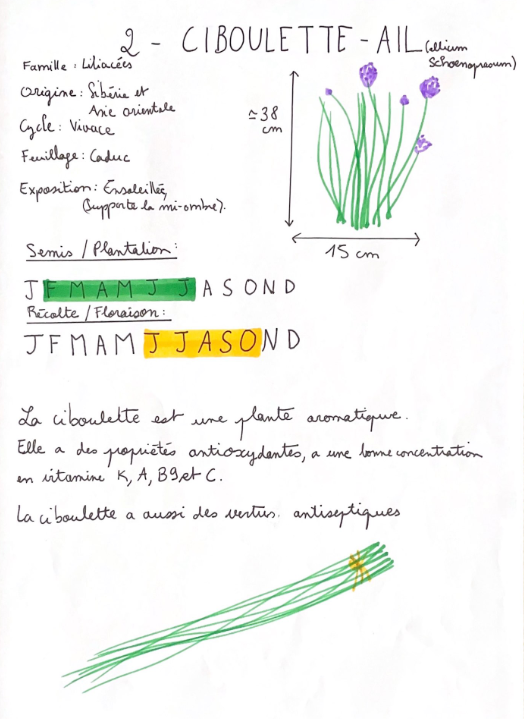 2 - CIBOULETTE-AIL (allium
Schoenoprasum)
Famille : Liliacées
Origine : Sibérie et
Asie orientale
Cycle : Vivace
Feuillage : Caduc
Exposition : Ensoleillée
(supporte la mi-ombre).
≃ 38
cm
15 cm
Semis / Plantation :
J F M A M J J A S O N D
Récolte / Floraison :
J F M A M J J A S O N D
La ciboulette est une plante aromatique.
Elle a des propriétés antioxydantes, a une bonne concentration
en vitamine K, A, B9 et C.
La ciboulette a aussi des vertus antiseptiques